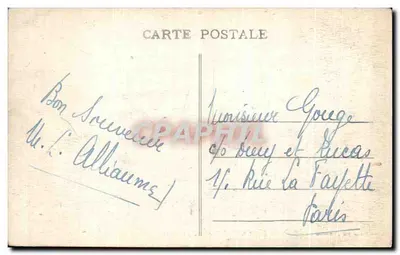 CARTE POSTALE
Bon Souvenir
M. L. Alliaume
Monsieur Gouge
c/o Duny et Lucas
15 Rue La Fayette
Paris